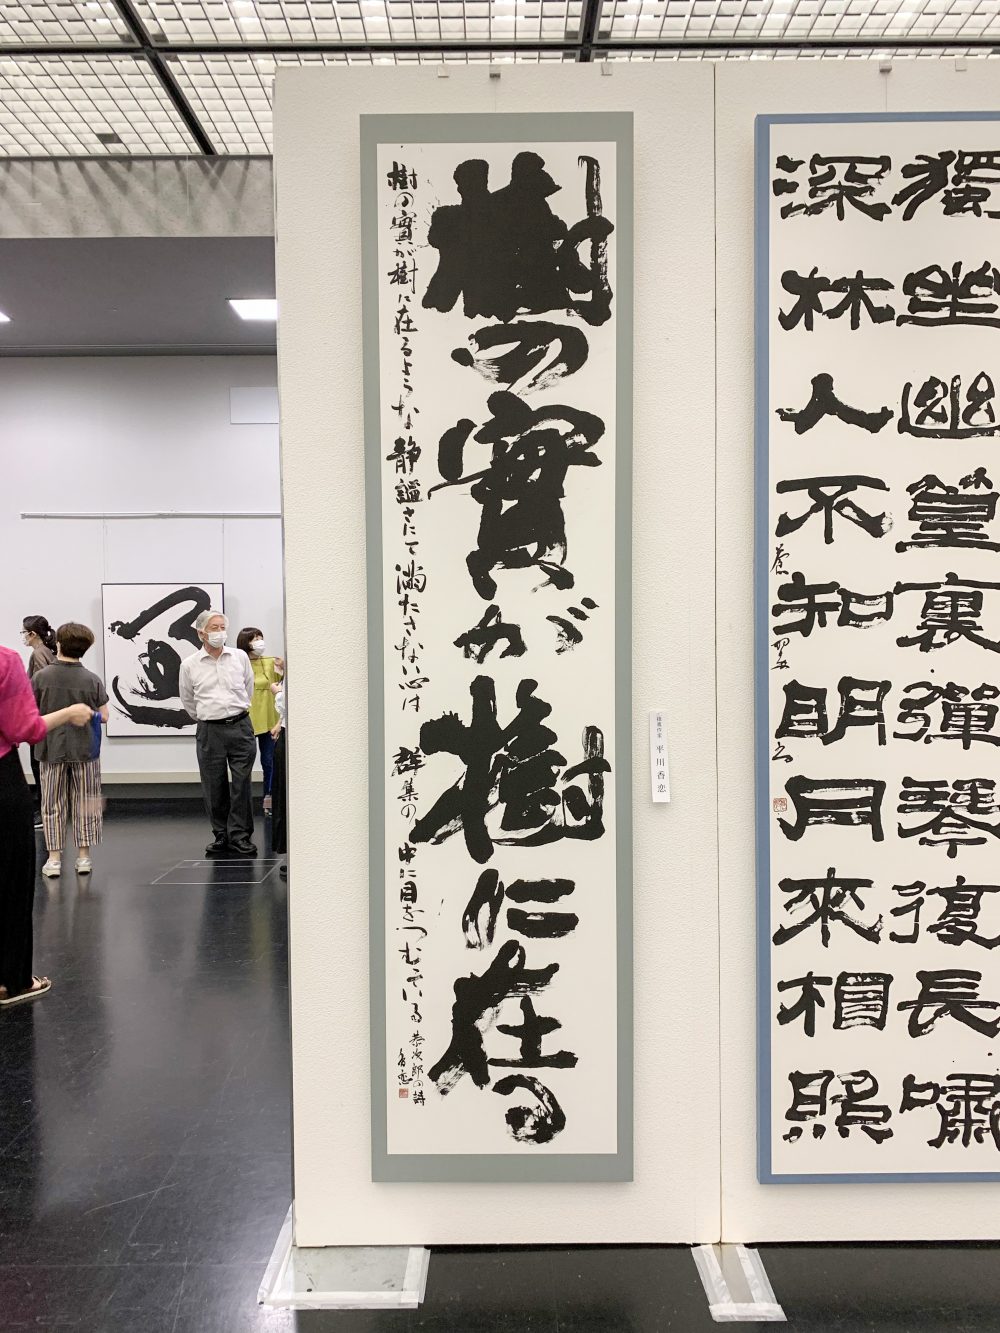 樹の實が樹に在る
樹の實が樹に在るような静謐さにて満たさない心は
群集の中に目をつむっている 恭次郎の詩
香恋
平川香恋
獨坐幽篁裏彈琴復長嘯
深林人不知明月來相照